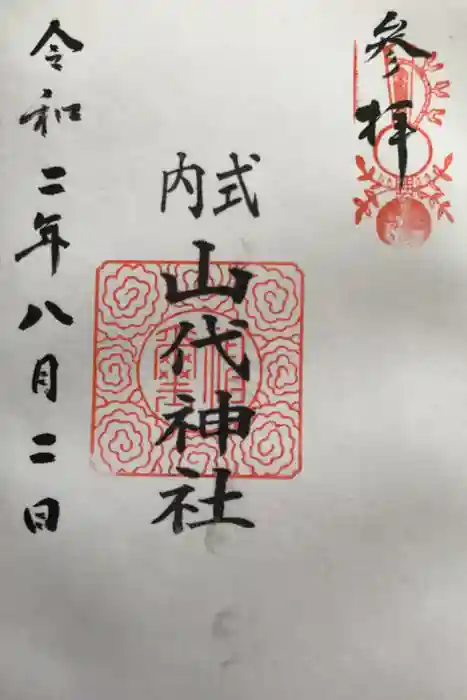 参拝
式内
山代神社
令和二年八月二日